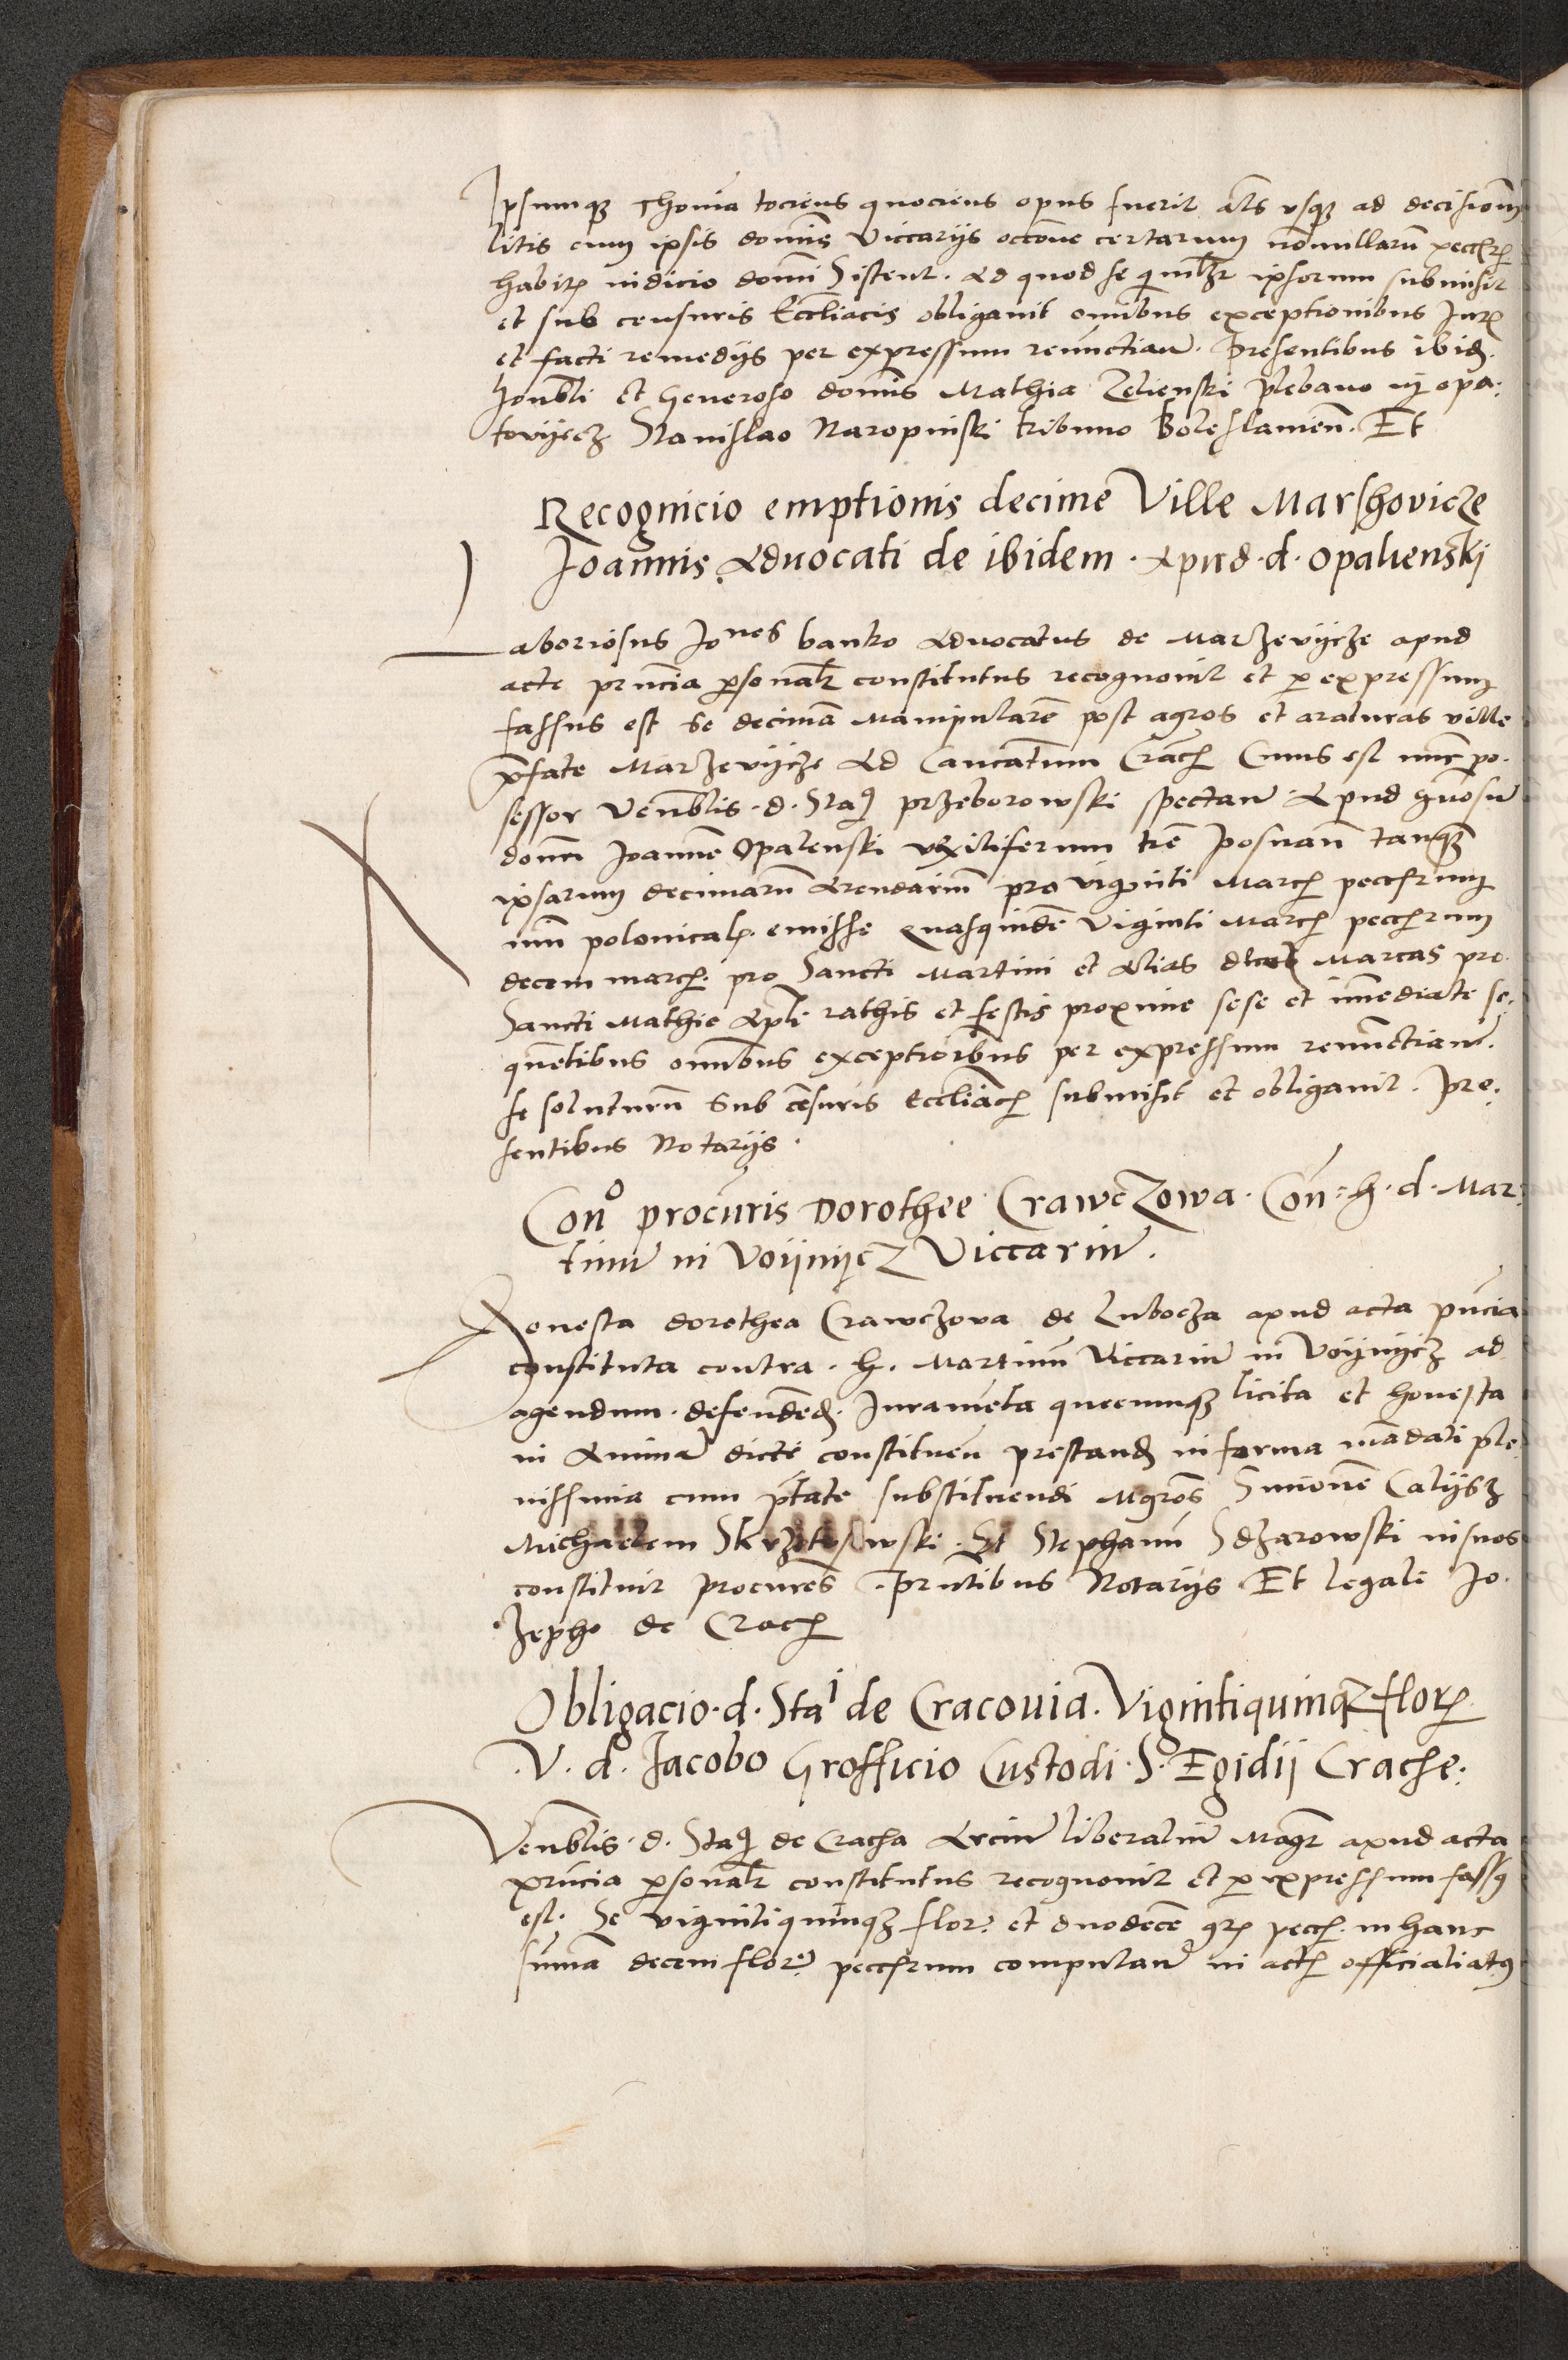 Ipsumq3 Thomā tociens quociens opus fuerit als usq3 ad decisionem
litis cum ipsis domīs Viccarijs occōne certarum nōnullarū pecch
habit iudicio domī Sistent. Ad quod se ipsorum submisit
et sub censuris Eccliacis obligauit omībus exceptionibus Jurꝭ
et facti remedijs per expressum renūctiaṅ. Presentibus ibid.
honbli et Generoso domīs Mathia Zelienski plebano in opa-
tovijecz Stanislao Naropinski tribuno Boleslamieṅ. Et
Recognicio emptionis decime Ville Marshovicze
Joannis Advocati de ibidem. Apud. d. Opalienskj
Laboriosus Jo nes banko Advocatus de Marzevijcze apud
acta pṅcia psonalr constitutus recognouit et p expressum
fassus est se decimā Manipularē post agros et araturas ville
pfate Marzevijcze Ad Cancatum Crach Cuius est nunc po-
sessor Venblis. d. Sta9 przeborowski spectaṅ Apud gnosū
domī Joannē Opalenski vexiliferum tre Posnaṅ tanq3
ipsarum decimarū Arendariū pro viginti March pecchrum
nūi polonicalꝭ. emisse quasquidē viginti March peccherum
decem march. pro Sancti Martini et Alias decem Marcas pro
Sancti Mathie Apli rathis et festis proxime sese et immediate se-
quētibus omībus exceptionibus per expressum renūctiaṅ.
se soluturū sub cēsuris Eccliach submisit et obligauit. Pre-
sentibus Notarijs.
Con̄o procuris Dorothee Crawczowa. Con̄. h. d. Mar-
tinū in Voijnijcz Viccariū.
Honesta dorothea Crawczova de Lubocza apud acta pṅcia
constituta contra. h. Martinū Viccariū in Voijnijcz ad
agendum. defendēd. Juramēta quecumq3 licita et honesta
in Animā dicte constitueṅ prestand in forma mādati ple-
nissima cum ptate substituendi Mgros Simonē Calijsz
Michaelem Skrzetuswski. Et Stephanū Sdzarowski in suos
constituit procures. Pṅtibus Notarijs Et legale Jo-
zepho de Crach
Obligacio. d. Stai de Cracouia. Vigintiquinq3 flor
V. do. Jacobo Grofficio Custodi. S. Egidij Crache.
Venblis. d. Sta9 de Cracha Arciū liberaliū Magr apud acta
pṅcia psonalr constitutus recognouit et p expressum fass9
est. Se vigintiquinq3 flor. et duodecē grꝭ pecch. in hanc
summā decem flor. pecchrum computaṅ in actꝭ officialiat9